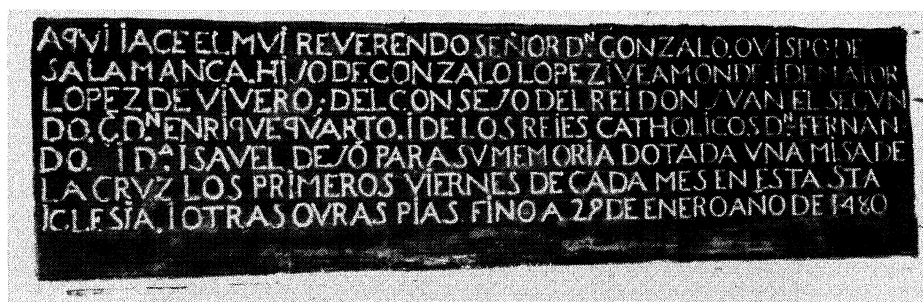 AQVI IACE EL MVI REVERENDO SEÑOR Dᴺ GONZALO. OVISPO DE
SALAMANCA. HIJO DE GONZALO LOPEZ I VEAMONDE. I DE MAIOR
LOPEZ DE VIVERO; DEL CONSEJO DEL REI DON JVAN EL SEGVN
DO. Dᴺ ENRIQVE QVARTO. I DE LOS REIES CATHOLICOS Dᴺ FERNAN
DO. I Dᴬ ISAVEL DEJÓ PARA SV MEMORIA DOTADA VNA MISA DE
LA CRVZ LOS PRIMEROS VIERNES DE CADA MES EN ESTA STA
IGLESIA. I OTRAS OVRAS PIAS FINO A 29 DE ENERO AÑO DE 1480